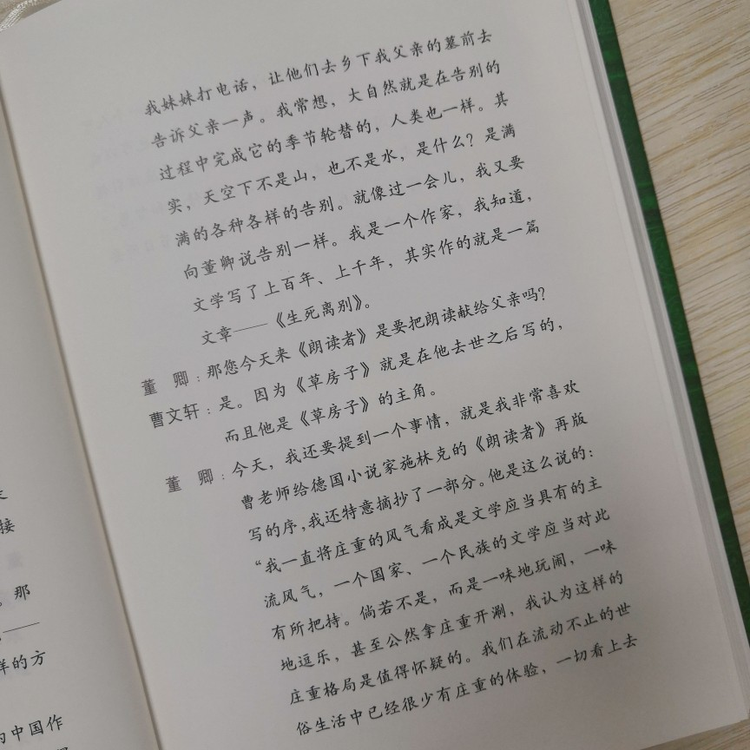 我妹妹打电话，让他们去乡下我父亲的墓前去
告诉父亲一声。我常想，大自然就是在告别的
过程中完成它的季节轮替的，人类也一样。其
实，天空下不是山，也不是水，是什么？是满
满的各种各样的告别。就像过一会儿，我又要
向董卿说告别一样。我是一个作家，我知道，
文学写了上百年、上千年，其实作的就是一篇
文章——《生死离别》。
董　卿：那您今天来《朗读者》是要把朗读献给父亲吗？
曹文轩：是。因为《草房子》就是在他去世之后写的，
而且他是《草房子》的主角。
董　卿：今天，我还要提到一个事情，就是我非常喜欢
曹老师给德国小说家施林克的《朗读者》再版
写的序，我还特意摘抄了一部分。他是这么说的：
“我一直将庄重的风气看成是文学应当具有的主
流风气，一个国家、一个民族的文学应当对此
有所把持。倘若不是，而是一味地玩闹，一味
地逗乐，甚至公然拿庄重开涮，我认为这样的
庄重格局是值得怀疑的。我们在流动不止的世
俗生活中已经很少有庄重的体验，一切看上去
接
。那
——
样的方
中国作